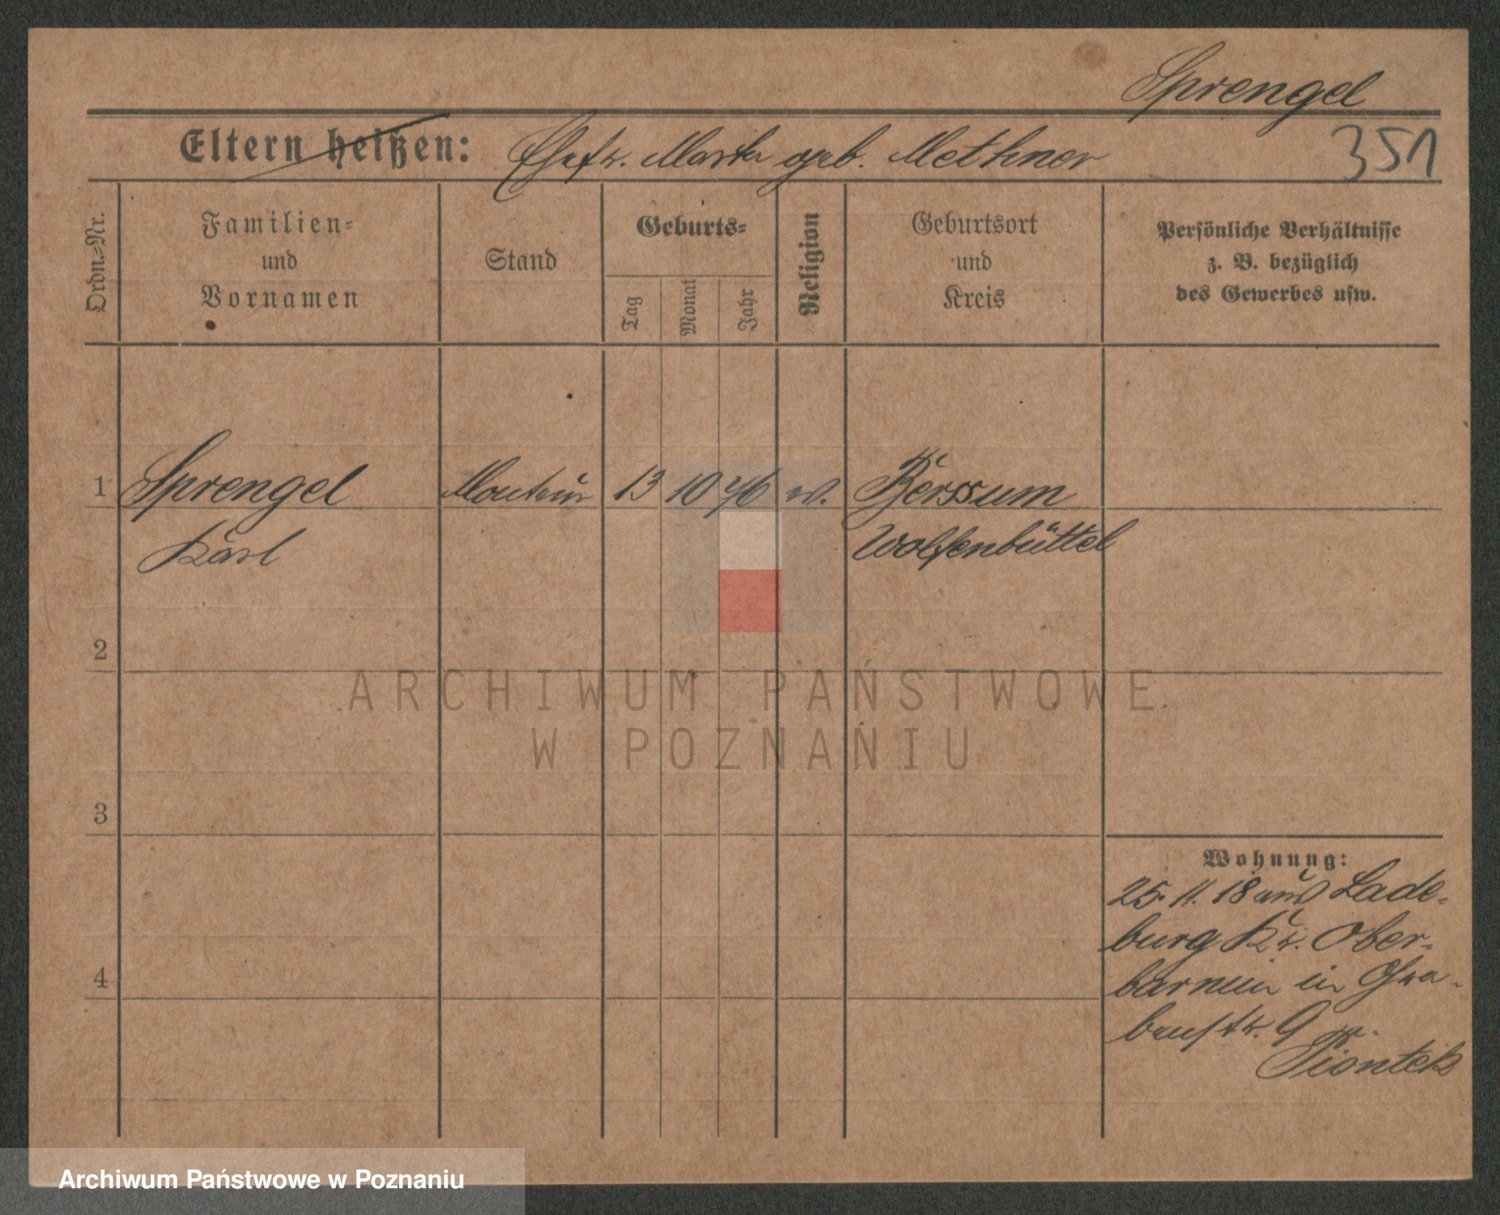 Sprengel
Eltern heißen: Ehefr. Marta geb. Methner
351
Ordn.-Nr.
Familien-
und
Vornamen
Stand
Geburts-
Tag
Monat
Jahr
Religion
Geburtsort
und
Kreis
Persönliche Verhältnisse
z. B. bezüglich
des Gewerbes usw.
1
Sprengel
Karl
Monteur
13
10
76
ev.
Börssum
Wolfenbüttel
2
3
4
ARCHIWUM PAŃSTWOWE
W POZNANIU
Wohnung:
25. 11. 18 aus Lade-
burg Kr. Ober-
barnim in Gra-
benstr. 9
Piontek
Archiwum Państwowe w Poznaniu